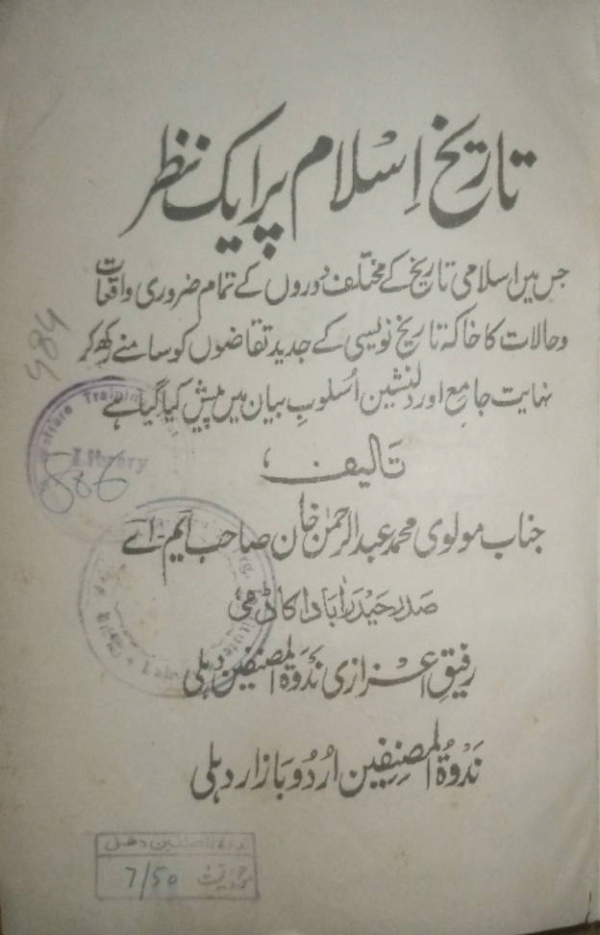 تاریخ اِسلام پر ایک نظر
جس میں اسلامی تاریخ کے مختلف دوروں کے تمام ضروری واقعات
وحالات کا خاکہ تاریخ نویسی کے جدید تقاضوں کو سامنے رکھ کر
نہایت جامع اور دلنشین اُسلوبِ بیان میں پیش کیا گیا ہے
484
Training
Library
586
تالیف
جناب مولوی محمد عبدالرحمٰن خان صاحب ایم-اے
صدر حیدرآباد اکاڈمی
رفیقِ اعزازی ندوۃ المصنفین دہلی
ندوۃ المصنفین اردو بازار دہلی
ندوۃ المصنفین دہلی
قیمت 7/50